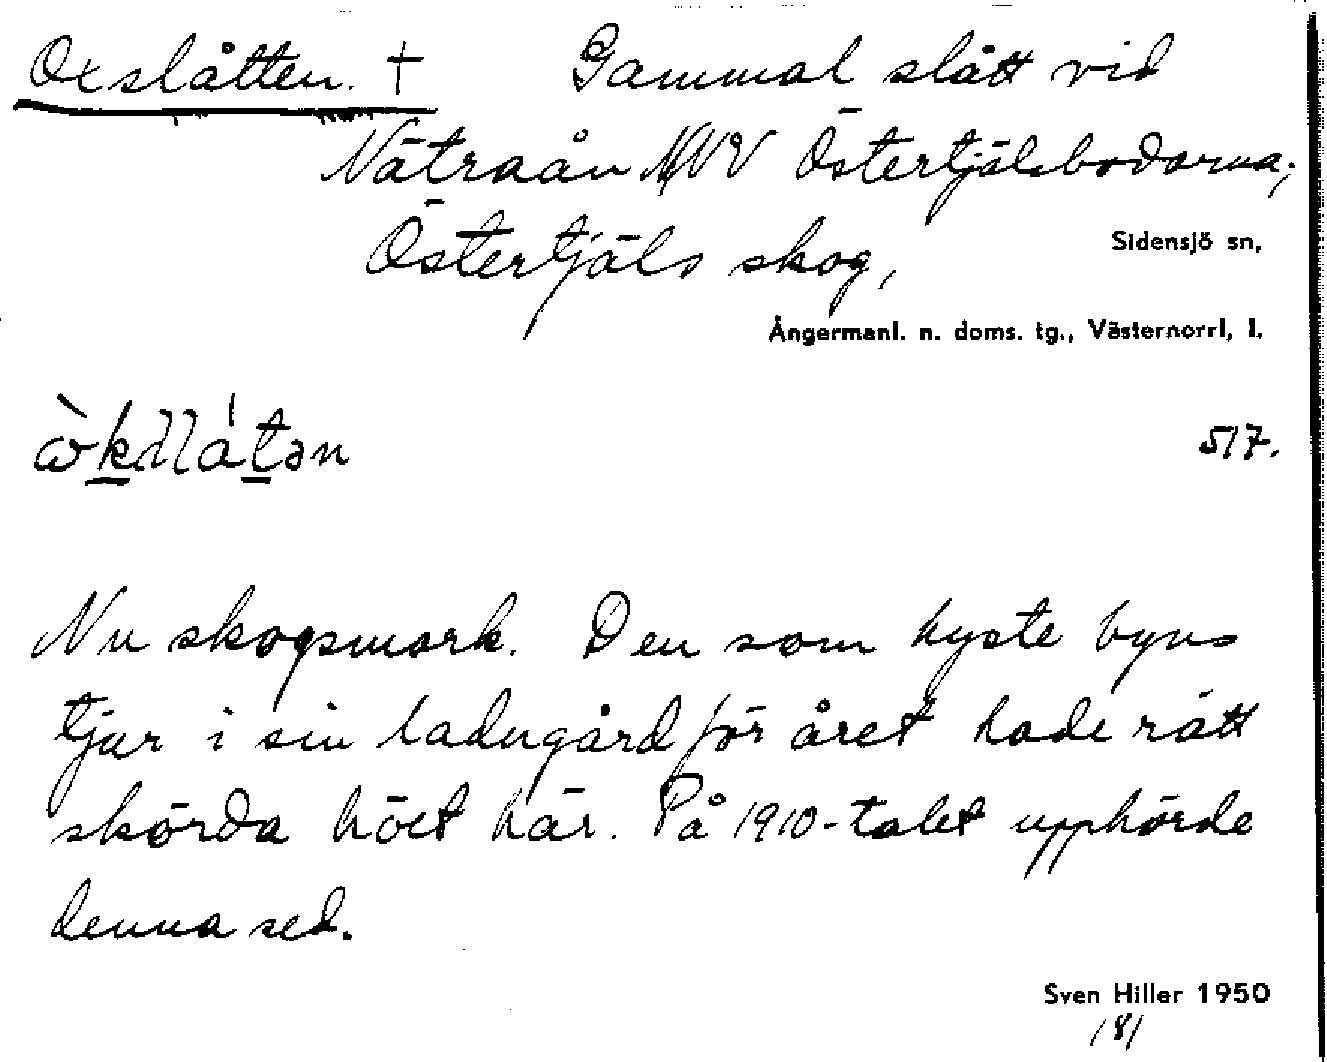 Oxslåtten. † Gammal slått vid
Nätraån NV Östertjälsbodarna;
Östertjäls skog,
Sidensjö sn,
Ångermanl. n. doms. tg., Västernorrl, l.
517.
Nu skogsmark. Den som hyste byns
tjur i sin ladugård för året hade rätt
skörda höet här. På 1910-talet upphörde
denna sed.
Sven Hiller 1950
/8/